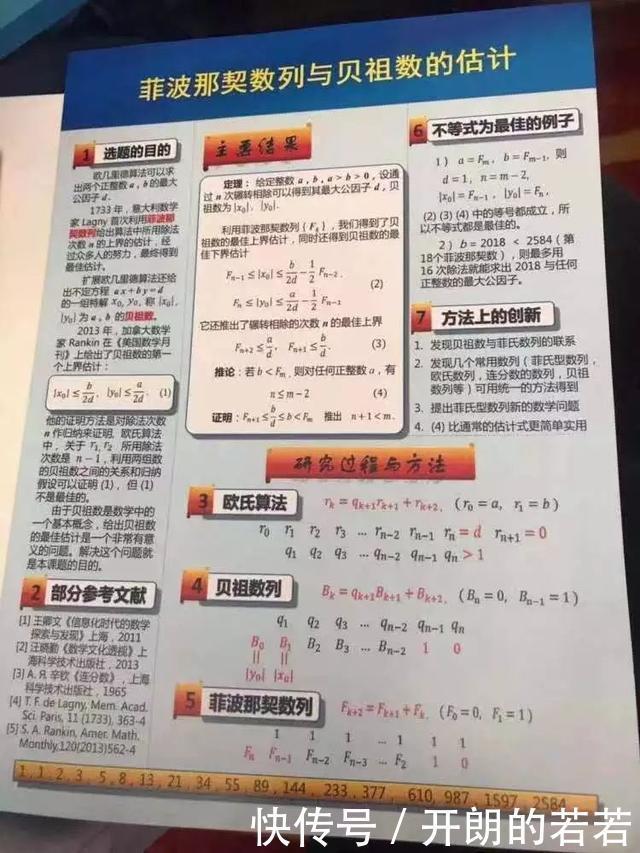 菲波那契数列与贝祖数的估计
1 选题的目的
欧几里德算法可以求
出两个正整数 a , b 的最大
公因子 d .
1733 年，意大利数学
家 Lagny 首次利用菲波那
契数列给出算法中所用除法
次数 n 的上界的估计，经
过众多人的努力，最终得到
最佳估计。
扩展欧几里德算法还给
出不定方程 ax + by = d
的一组特解 x₀, y₀, 称 |x₀|,
|y₀| 为 a , b 的贝祖数。
2013 年，加拿大数学
家 Rankin 在《美国数学月
刊》上给出了贝祖数的第一
个上界估计：
|x₀| ≤ b/2d , |y₀| ≤ a/2d . (1)
他的证明方法是对除法次数
n 作归纳来证明, 欧氏算法
中，关于 r₁, r₂ 所用除法
次数是 n − 1，利用两组数
的贝祖数之间的关系和归纳
假设可以证明 (1)，但 (1)
不是最佳的。
由于贝祖数是数学中的
一个基本概念，给出贝祖数
的最佳估计是一个非常有意
义的问题。解决这个问题就
是本课题的目的。
2 部分参考文献
[1] 王卿文《信息化时代的数学
探索与发现》上海，2011
[2] 汪晓勤《数学文化透视》上
海科学技术出版社，2013
[3] А. Я. 辛钦《连分数》，上海
科学技术出版社，1965
[4] T. F. de Lagny, Mem. Acad.
Sci. Paris, 11 (1733), 363-4
[5] S. A. Rankin, Amer. Math.
Monthly,120(2013)562-4
主要结果
定理：给定整数 a , b , a > b > 0 , 设通
过 n 次辗转相除可以得到其最大公因子 d , 贝
祖数为 |x₀| , |y₀| .
利用菲波那契数列 { Fₖ } ，我们得到了贝
祖数的最佳上界估计，同时还得到贝祖数的最
佳下界估计
Fₙ₋₁ ≤ |x₀| ≤ b/2d − 1/2 Fₙ₋₂ ,
(2)
Fₙ ≤ |y₀| ≤ a/2d − 1/2 Fₙ₋₂
它还推出了辗转相除的次数 n 的最佳上界
Fₙ₊₂ ≤ a/d , Fₙ₊₁ ≤ b/d . (3)
推论：若 b < Fₘ , 则对任何正整数 a , 有
n ≤ m − 2 (4)
证明：Fₙ₊₁ ≤ b/d ≤ b < Fₘ 推出 n + 1 < m .
6 不等式为最佳的例子
1 ) a = Fₘ , b = Fₘ₋₁, 则
d = 1, n = m − 2,
|x₀| = Fₙ₋₁ , |y₀| = Fₙ ,
(2) (3) (4) 中的等号都成立，所
以不等式都是最佳的。
2 ) b = 2018 < 2584 ( 第
18个菲波那契数 )，则最多用
16 次除法就能求出 2018 与任何
正整数的最大公因子。
7 方法上的创新
1. 发现贝祖数与菲氏数列的联系
2. 发现几个常用数列 ( 菲氏型数列，
欧氏数列，连分数的数列，贝祖
数列等 ) 可用统一的方法得到
3. 提出菲氏型数列新的数学问题
4. (4) 比通常的估计式更简单实用
研究过程与方法
3 欧氏算法 rₖ = qₖ₊₁rₖ₊₁ + rₖ₊₂, ( r₀ = a, r₁ = b )
r₀ r₁ r₂ r₃ … rₙ₋₂ rₙ₋₁ rₙ = d rₙ₊₁ = 0
q₁ q₂ q₃ … qₙ₋₂ qₙ₋₁ qₙ > 1
4 贝祖数列 Bₖ = qₖ₊₁Bₖ₊₁ + Bₖ₊₂, ( Bₙ = 0, Bₙ₋₁ = 1 )
q₁ q₂ q₃ … qₙ₋₂ qₙ₋₁ qₙ
B₀ B₁ B₂ B₃ … Bₙ₋₂ 1 0
|| ||
|y₀| |x₀|
5 菲波那契数列 Fₖ₊₂ = Fₖ₊₁ + Fₖ, ( F₀ = 0, F₁ = 1 )
1 1 1 … 1 1 1
Fₙ Fₙ₋₁ Fₙ₋₂ Fₙ₋₃ … F₂ 1 0
1, 1, 2, 3, 5, 8, 13, 21, 34, 55, 89, 144, 233, 377, 610, 987, 1597, 2584
快传号 / 开朗的若若